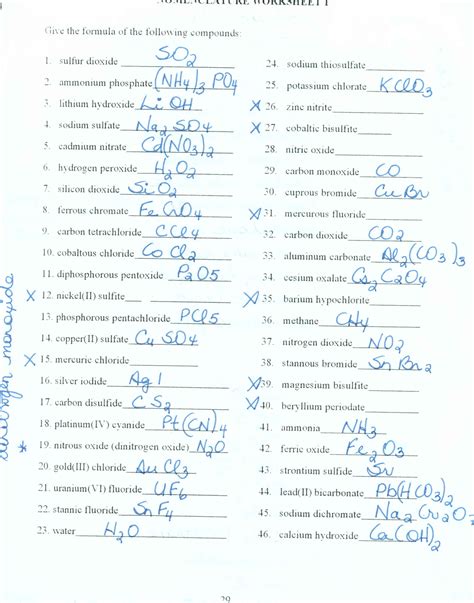 NOMENCLATURE WORKSHEET 1
Give the formula of the following compounds:
1. sulfur dioxide SO2
2. ammonium phosphate (NH4)3 PO4
3. lithium hydroxide Li OH
4. sodium sulfate Na2 SO4
5. cadmium nitrate Cd(NO3)2
6. hydrogen peroxide H2O2
7. silicon dioxide SiO2
8. ferrous chromate Fe CrO4
9. carbon tetrachloride CCl4
10. cobaltous chloride Co Cl2
11. diphosphorous pentoxide P2O5
X 12. nickel(II) sulfite
13. phosphorous pentachloride PCl5
14. copper(II) sulfate Cu SO4
X 15. mercuric chloride
16. silver iodide Ag I
17. carbon disulfide CS2
18. platinum(IV) cyanide Pt(CN)4
* 19. nitrous oxide (dinitrogen oxide) N2O
20. gold(III) chloride Au Cl3
21. uranium(VI) fluoride UF6
22. stannic fluoride SnF4
23. water H2O
monoxide
24. sodium thiosulfate
25. potassium chlorate KClO3
X 26. zinc nitrite
X 27. cobaltic bisulfite
28. nitric oxide
29. carbon monoxide CO
30. cuprous bromide CuBr
X 31. mercurous fluoride
32. carbon dioxide CO2
33. aluminum carbonate Al2(CO3)3
34. cesium oxalate Cs2C2O4
X 35. barium hypochlorite
36. methane CH4
37. nitrogen dioxide NO2
38. stannous bromide Sn Br2
X 39. magnesium bisulfite
X 40. beryllium periodate
41. ammonia NH3
42. ferric oxide Fe2O3
43. strontium sulfide Sr
44. lead(II) bicarbonate Pb(HCO3)2
45. sodium dichromate Na2Cr2O
46. calcium hydroxide Ca(OH)2
29